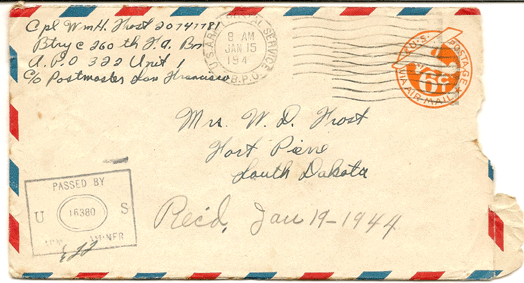 Cpl Wm H. Frost 20747781
Btry C 260 th F.A. Bn
A.P.O 322 Unit 1
c/o Postmaster San Francisco
U.S. ARMY POSTAL SERVICE
8 AM
JAN 15
194
A.P.O.
U.S. POSTAGE
6¢
VIA AIR-MAIL
Mrs. W. D. Frost
Fort Pierre
South Dakota
PASSED BY
U 16380 S
ARMY EXAMINER
Rec'd, Jan 19-1944